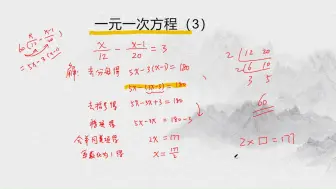 一元一次方程（3）
x/12 - x-1/20 = 3
解: 去分母得 5x-3(x-1)=180
5x-(3x-3)=180
去括号得 5x-3x+3=180
移项得 5x-3x=180-3
合并同类项得 2x=177
系数化为1得 x=177/2
2 12 20
2 6 10
3 5
60
2x□=177